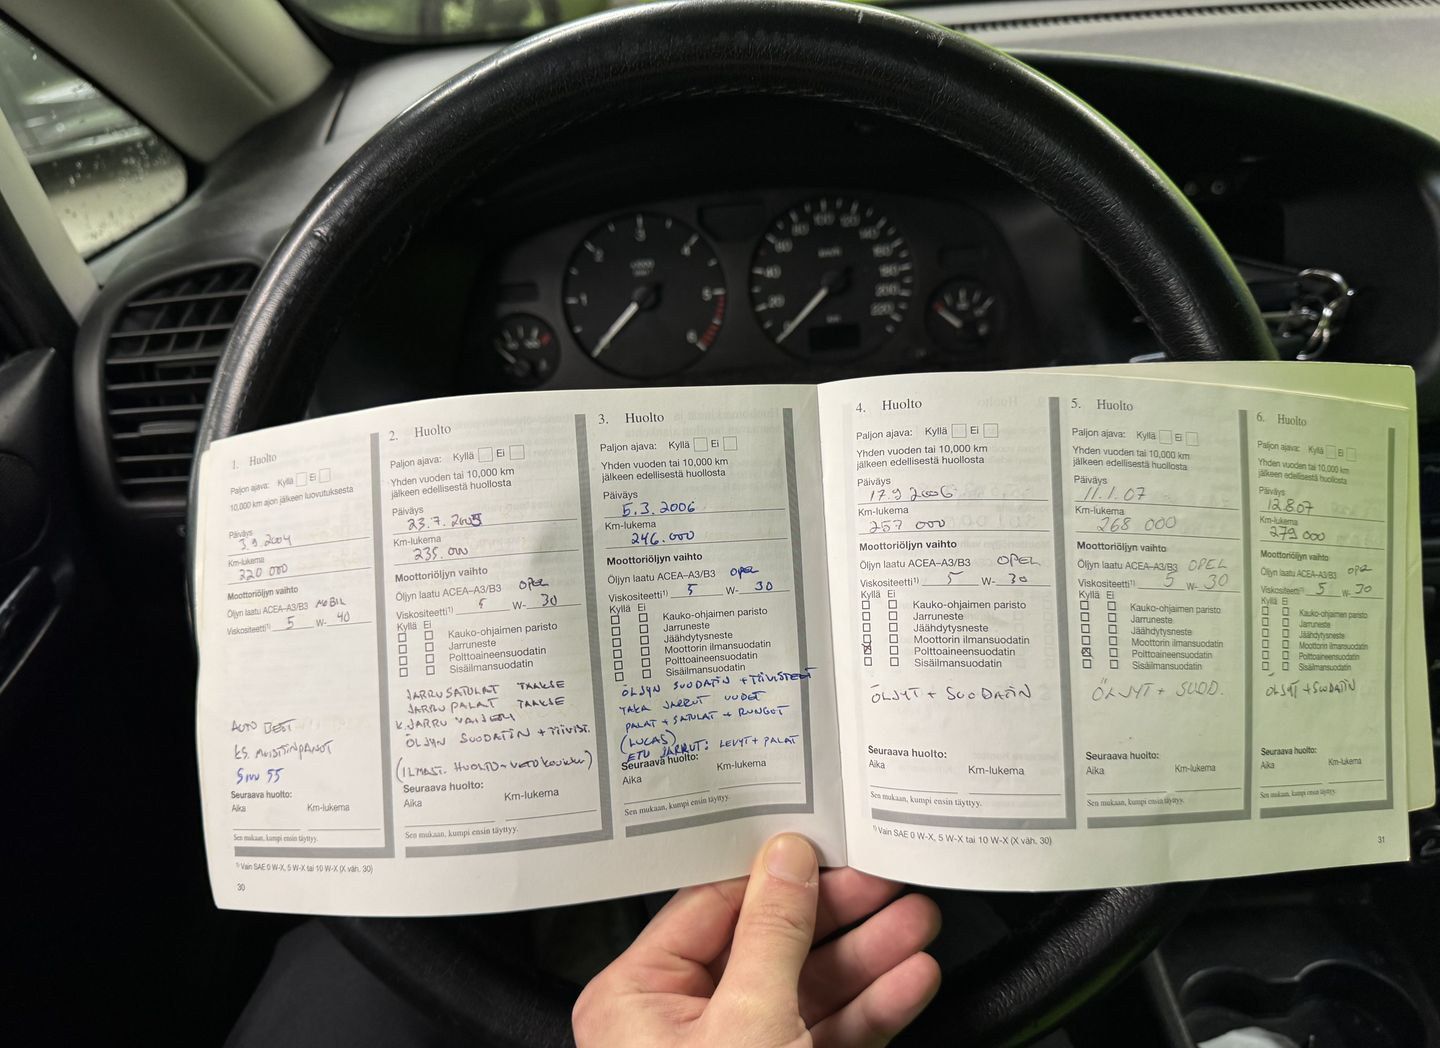 1. Huolto
Paljon ajava: Kyllä Ei
10,000 km ajon jälkeen luovutuksesta
Päiväys
3.9.2004
Km-lukema
220 000
Moottoriöljyn vaihto
Öljyn laatu ACEA–A3/B3 MOBIL
Viskositeetti¹⁾ 5 W- 40
AUTO BEST
KS. MUISTIINPANOT
SIVU 55
Seuraava huolto:
Aika Km-lukema
Sen mukaan, kumpi ensin täyttyy.
2. Huolto
Paljon ajava: Kyllä Ei
Yhden vuoden tai 10,000 km
jälkeen edellisestä huollosta
Päiväys
23.7.2005
Km-lukema
235.000
Moottoriöljyn vaihto
Öljyn laatu ACEA–A3/B3 OPEL
Viskositeetti¹⁾ 5 W- 30
Kyllä Ei
Kauko-ohjaimen paristo
Jarruneste
Polttoaineensuodatin
Sisäilmansuodatin
JARRUSATULAT TAAKSE
JARRU PALAT TAAKSE
K.JARRU VAIJERI
ÖLJYN SUODATIN + TIIVIST.
(ILMAST. HUOLTO + VETOKOUKKU)
Seuraava huolto:
Aika Km-lukema
Sen mukaan, kumpi ensin täyttyy.
3. Huolto
Paljon ajava: Kyllä Ei
Yhden vuoden tai 10,000 km
jälkeen edellisestä huollosta
Päiväys
5.3.2006
Km-lukema
246.000
Moottoriöljyn vaihto
Öljyn laatu ACEA–A3/B3 OPEL
Viskositeetti¹⁾ 5 W- 30
Kyllä Ei
Kauko-ohjaimen paristo
Jarruneste
Jäähdytysneste
Moottorin ilmansuodatin
Polttoaineensuodatin
Sisäilmansuodatin
ÖLJYN SUODATIN + TIIVISTEET
TAKA JARRUT UUDET
PALAT + SATULAT + RUNGOT
(LUCAS)
ETU JARRUT: LEVYT + PALAT
Seuraava huolto:
Aika Km-lukema
Sen mukaan, kumpi ensin täyttyy.
¹⁾ Vain SAE 0 W-X, 5 W-X tai 10 W-X (X väh. 30)
30
4. Huolto
Paljon ajava: Kyllä Ei
Yhden vuoden tai 10,000 km
jälkeen edellisestä huollosta
Päiväys
17.9 2006
Km-lukema
257 000
Moottoriöljyn vaihto
Öljyn laatu ACEA–A3/B3 OPEL
Viskositeetti¹⁾ 5 W- 30
Kyllä Ei
Kauko-ohjaimen paristo
Jarruneste
Jäähdytysneste
Moottorin ilmansuodatin
Polttoaineensuodatin
Sisäilmansuodatin
ÖLJYT + SUODATIN
Seuraava huolto:
Aika Km-lukema
Sen mukaan, kumpi ensin täyttyy.
5. Huolto
Paljon ajava: Kyllä Ei
Yhden vuoden tai 10,000 km
jälkeen edellisestä huollosta
Päiväys
11.1.07
Km-lukema
268 000
Moottoriöljyn vaihto
Öljyn laatu ACEA–A3/B3 OPEL
Viskositeetti¹⁾ 5 W- 30
Kyllä Ei
Kauko-ohjaimen paristo
Jarruneste
Jäähdytysneste
Moottorin ilmansuodatin
Polttoaineensuodatin
Sisäilmansuodatin
ÖLJYT + SUOD.
Seuraava huolto:
Aika Km-lukema
Sen mukaan, kumpi ensin täyttyy.
6. Huolto
Paljon ajava: Kyllä Ei
Yhden vuoden tai 10,000 km
jälkeen edellisestä huollosta
Päiväys
12.8.07
Km-lukema
279 000
Moottoriöljyn vaihto
Öljyn laatu ACEA–A3/B3 OPEL
Viskositeetti¹⁾ 5 W- 30
Kyllä Ei
Kauko-ohjaimen paristo
Jarruneste
Jäähdytysneste
Moottorin ilmansuodatin
Polttoaineensuodatin
Sisäilmansuodatin
ÖLJYT + SUODATIN
Seuraava huolto:
Aika Km-lukema
Sen mukaan, kumpi ensin täyttyy.
¹⁾ Vain SAE 0 W-X, 5 W-X tai 10 W-X (X väh. 30)
31